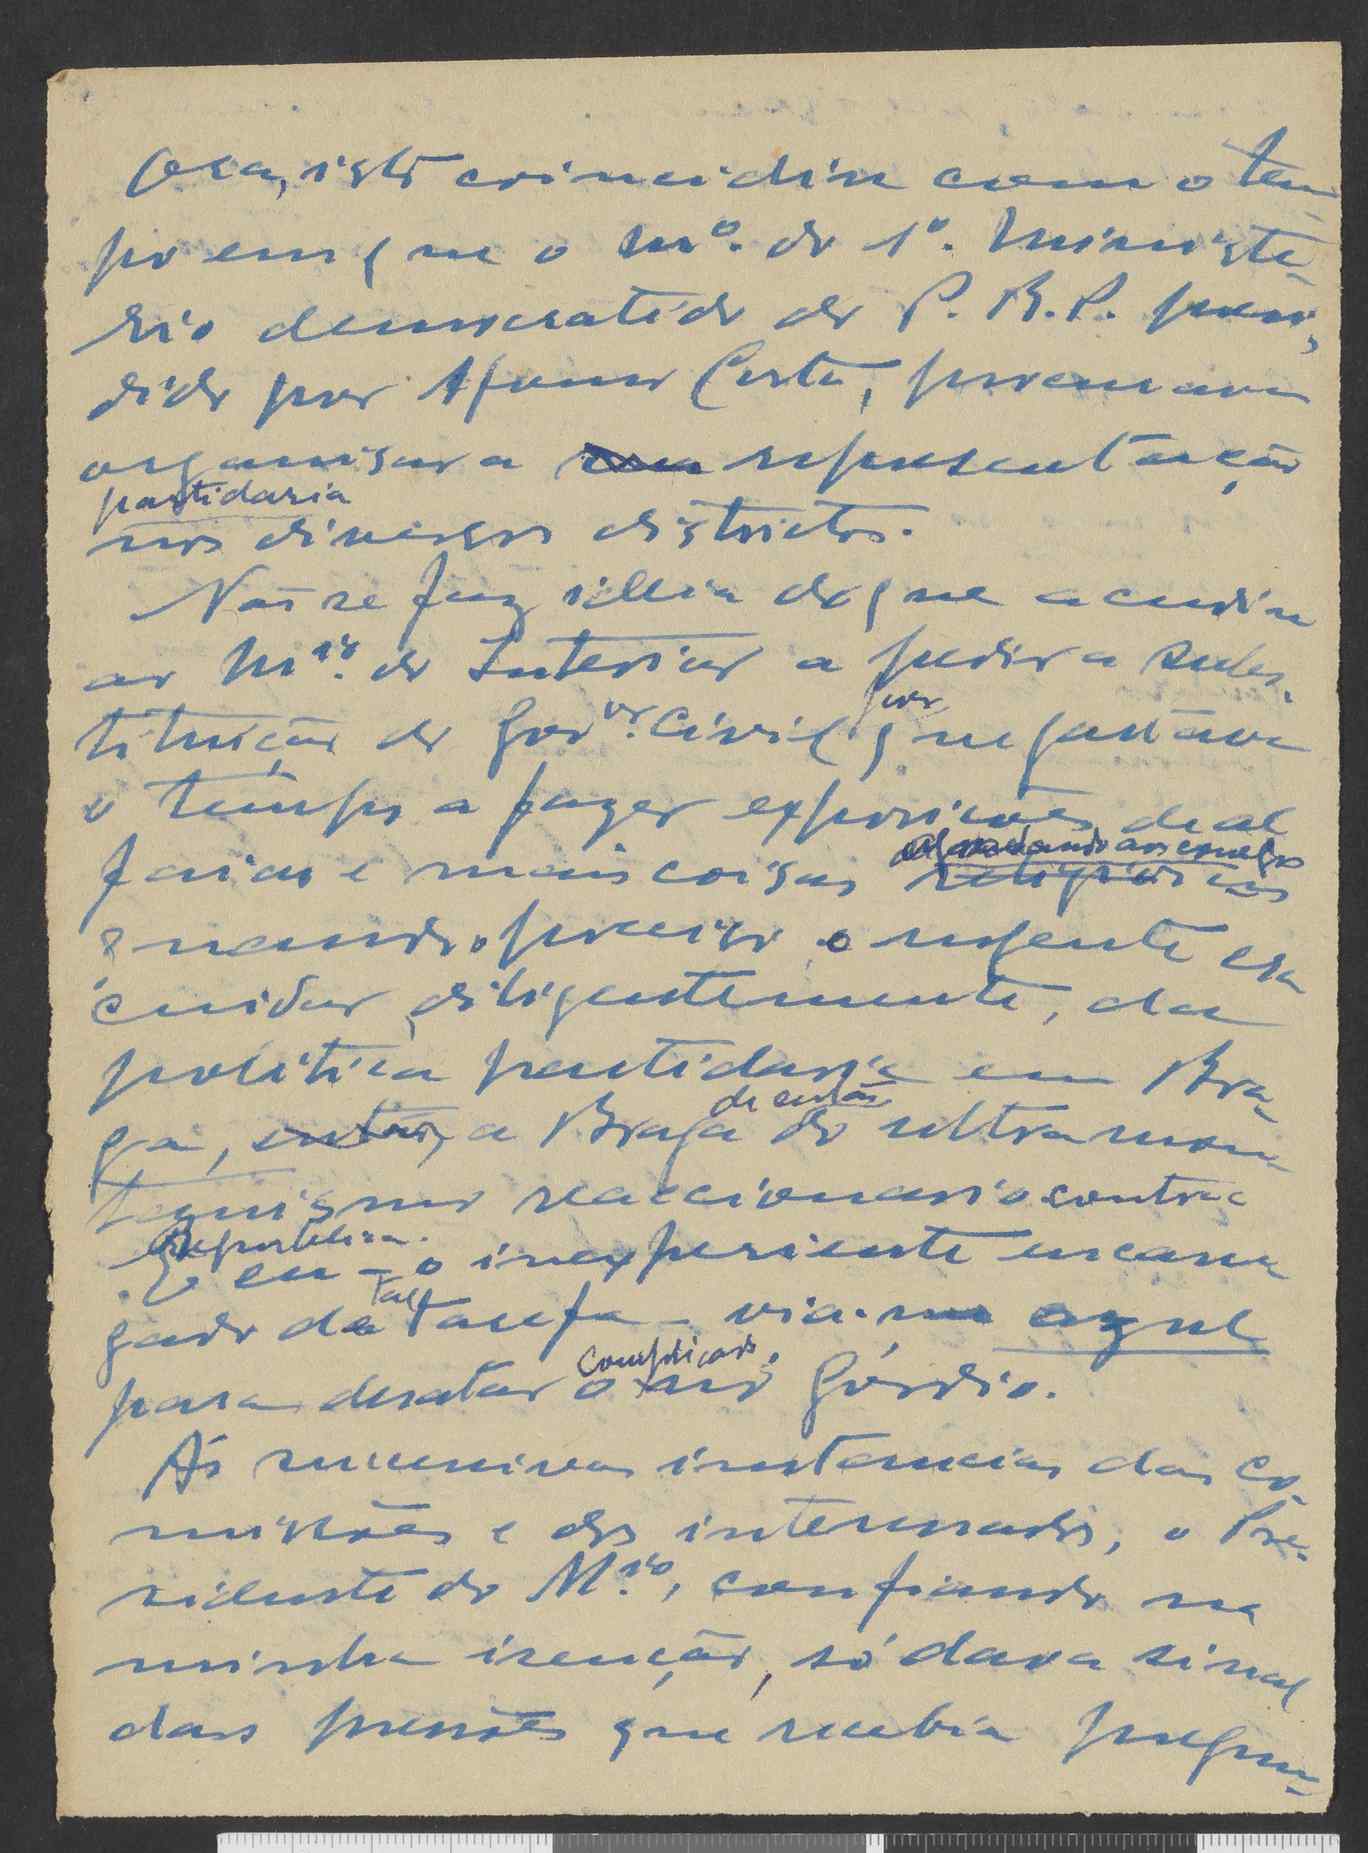 Ora, isto coincidiu com o tem-
po em que o M.º do 1.º Ministé-
rio democratico do P. R. P. presi-
dido por Afonso Costa, procurava
organisar a sua representação
partidaria
nos diversos districtos.
Não se faz idéia do que acudiu
ao M.rio do Interior a pedir a subs-
tituição do Gov.or Civil, por
que gastava
o tempo a fazer exposições de al
faias e mais coisas religiosas
quando, preciso e urgente era
cuidar, diligentemente, da
politica partidaria em Bra-
ga, então, a Braga de então
do ultramon-
tanismo reaccionario contra a
Republica.
E eu - o inexperiente encarre
gado de tal
tarefa - via-me azul
para desatar o complicado
nó górdio.
Ás sucessivas instancias das co-
missões e dos interessados, o Pre-
sidente do M.rio, confiando na
minha isenção, só dava sinal
das pressões que recebia pregun-